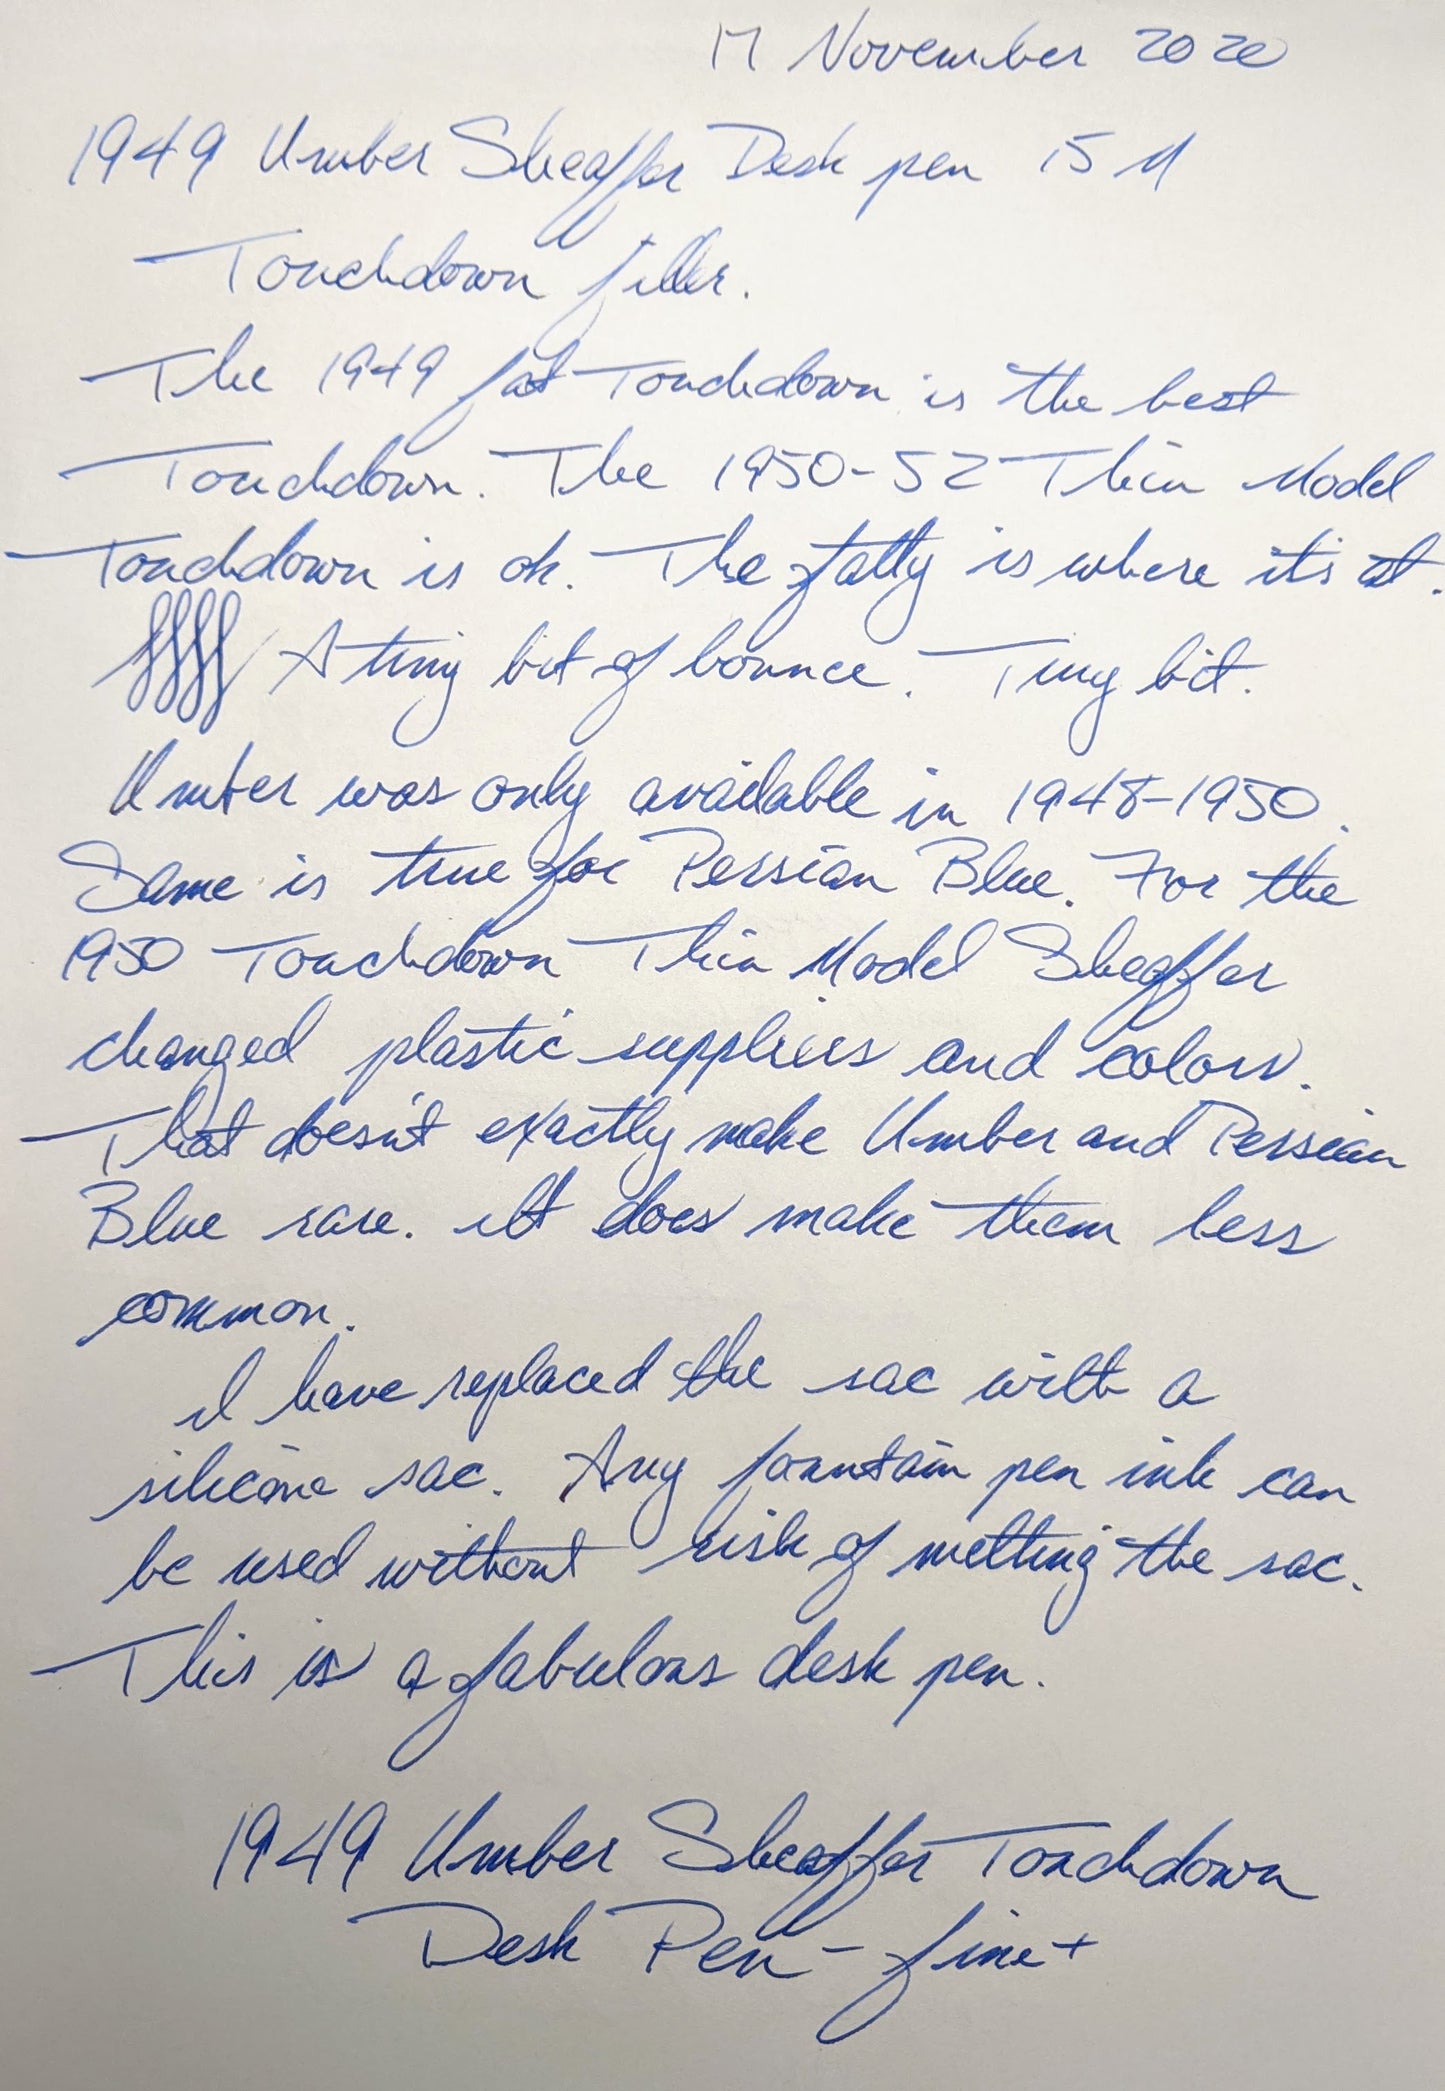 17 November 2020
1949 Umber Sheaffer Desk pen 15 M
Touchdown filler.
The 1949 fat Touchdown is the best
Touchdown. The 1950-52 Thin Model
Touchdown is ok. The fatty is where it's at.
A tiny bit of bounce. Tiny bit.
Umber was only available in 1948-1950.
Same is true for Persian Blue. For the
1950 Touchdown Thin Model Sheaffer
changed plastic suppliers and colors.
That doesn't exactly make Umber and Persian
Blue rare. It does make them less
common.
I have replaced the sac with a
silicone sac. Any fountain pen ink can
be used without risk of melting the sac.
This is a fabulous desk pen.
1949 Umber Sheaffer Touchdown
Desk Pen - fine+